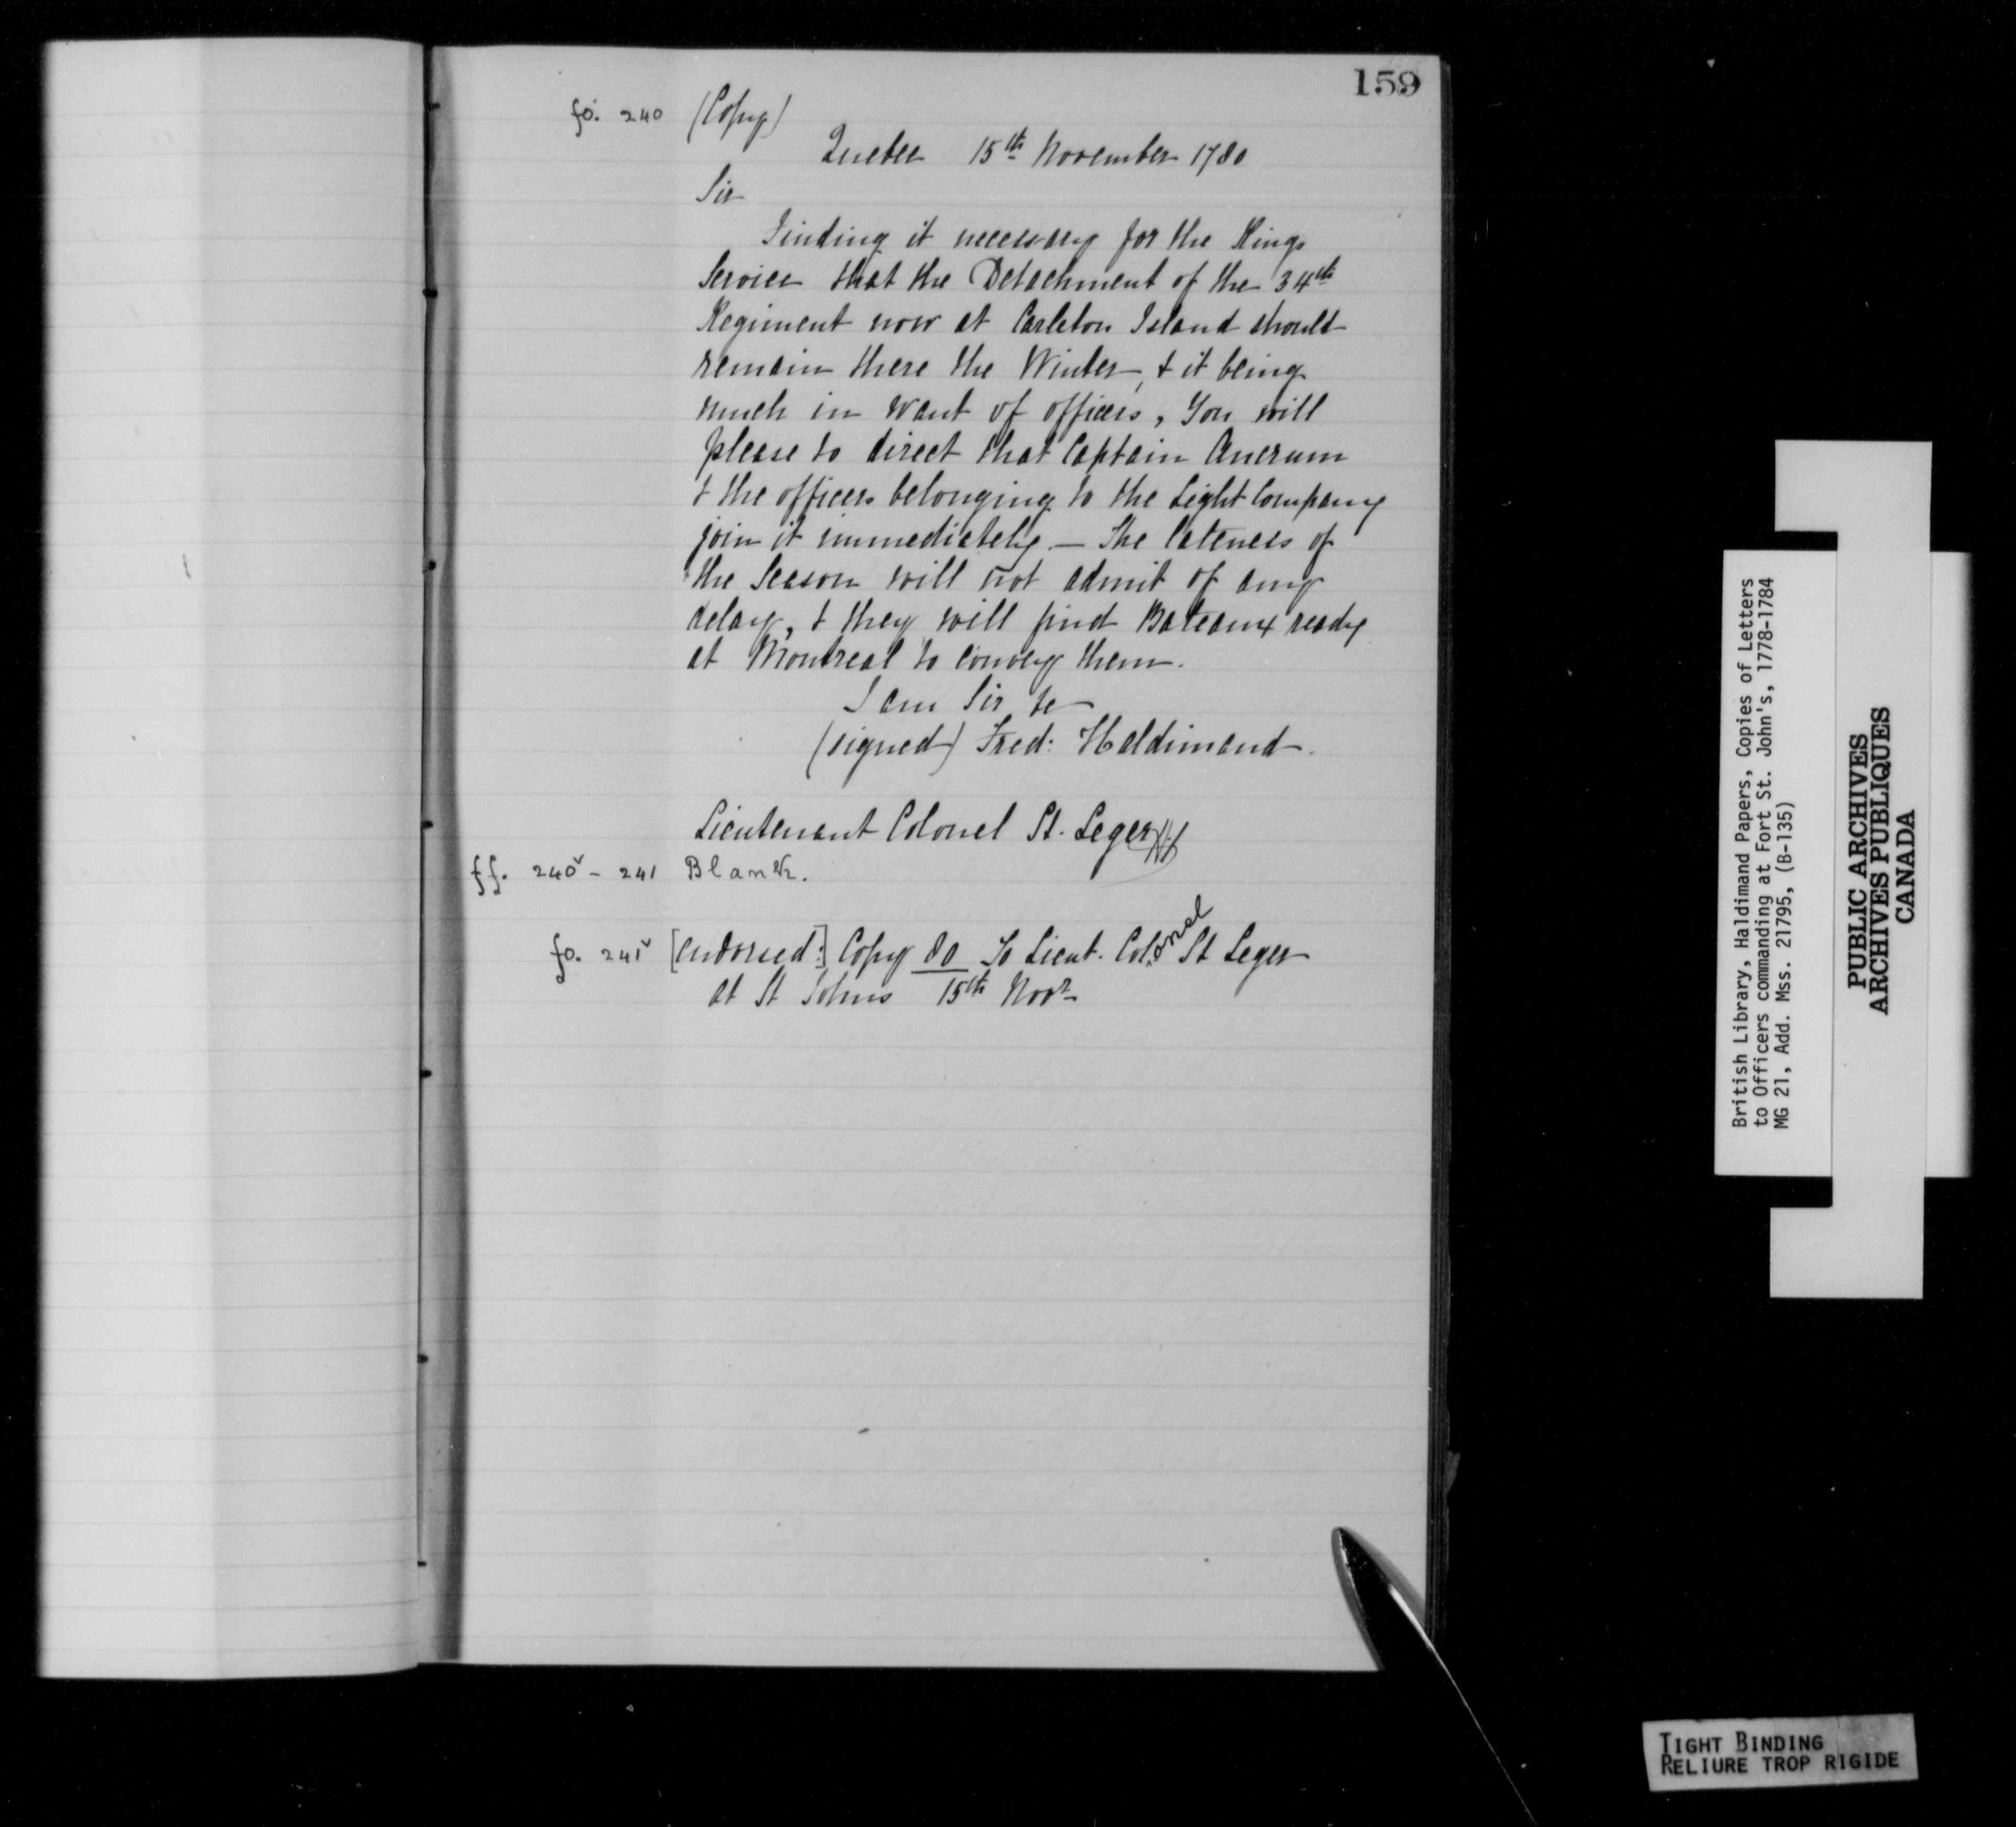 159
fo. 240 (Copy)
Quebec 15th November 1780
Sir
Finding it necessary for the Kings
Service that the Detachment of the 34th
Regiment now at Carleton Island should
remain there the Winter, & it being
much in want of officers, You will
please to direct that Captain Ancrum
& the officers belonging to the Light Company
join it immediately. — The lateness of
the Season will not admit of any
delay, & they will find Bateaux ready
at Montreal to convey them.
I am Sir, &c
(signed) Fred: Haldimand.
Lieutenant Colonel St. Leger
ff. 240v - 241 Blank.
fo. 241v [Endorsed:] Copy 80 To Lieut. Colonel St Leger
at St Johns 15th Novr
British Library, Haldimand Papers, Copies of Letters
to Officers commanding at Fort St. John's, 1778-1784
MG 21, Add. Mss. 21795, (B-135)
PUBLIC ARCHIVES
ARCHIVES PUBLIQUES
CANADA
TIGHT BINDING
RELIURE TROP RIGIDE